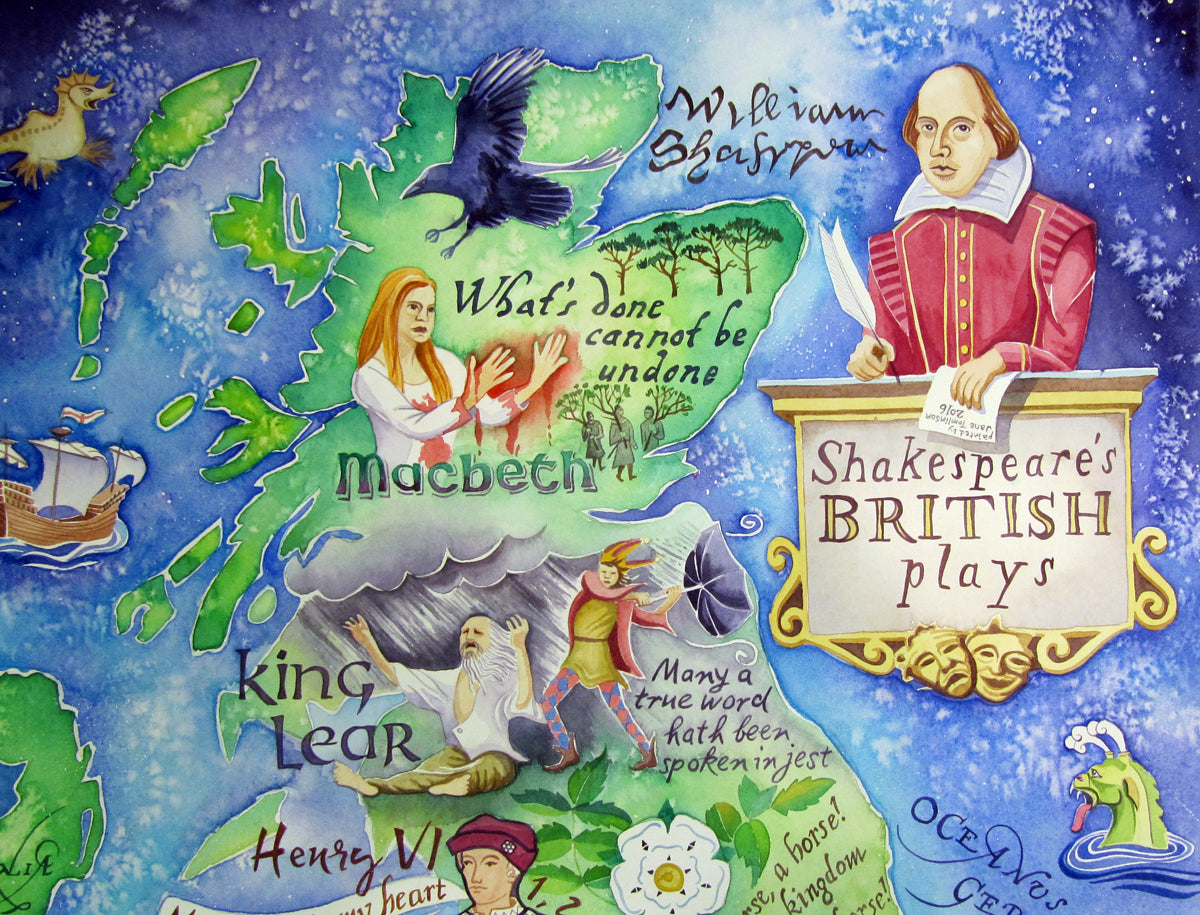 William
Shakspere
What's done
cannot be
undone
Macbeth
painted by
Jane Tomlinson
2016
Shakespeare's
BRITISH
plays
King
Lear
Many a
true word
hath been
spoken in jest
Henry VI
heart
1, 2
a horse!
kingdom
OCEANUS